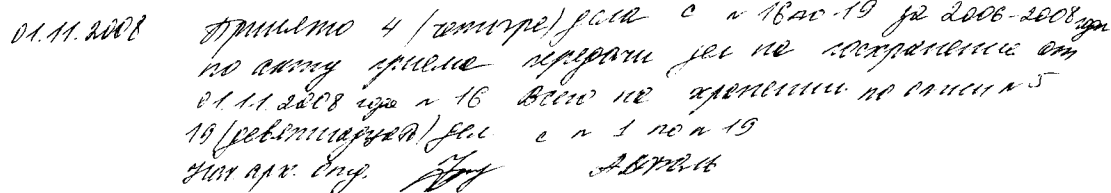 01.11.2008 Принято 4 (четыре) дела с № 16 до 19 за 2006-2008 годы
по акту приема передачи дел на госхранение от
01.11.2008 года № 16 Всего на хранении по описи № 5
19 (девятнадцать) дел с № 1 по № 19
Нач арх. отд.